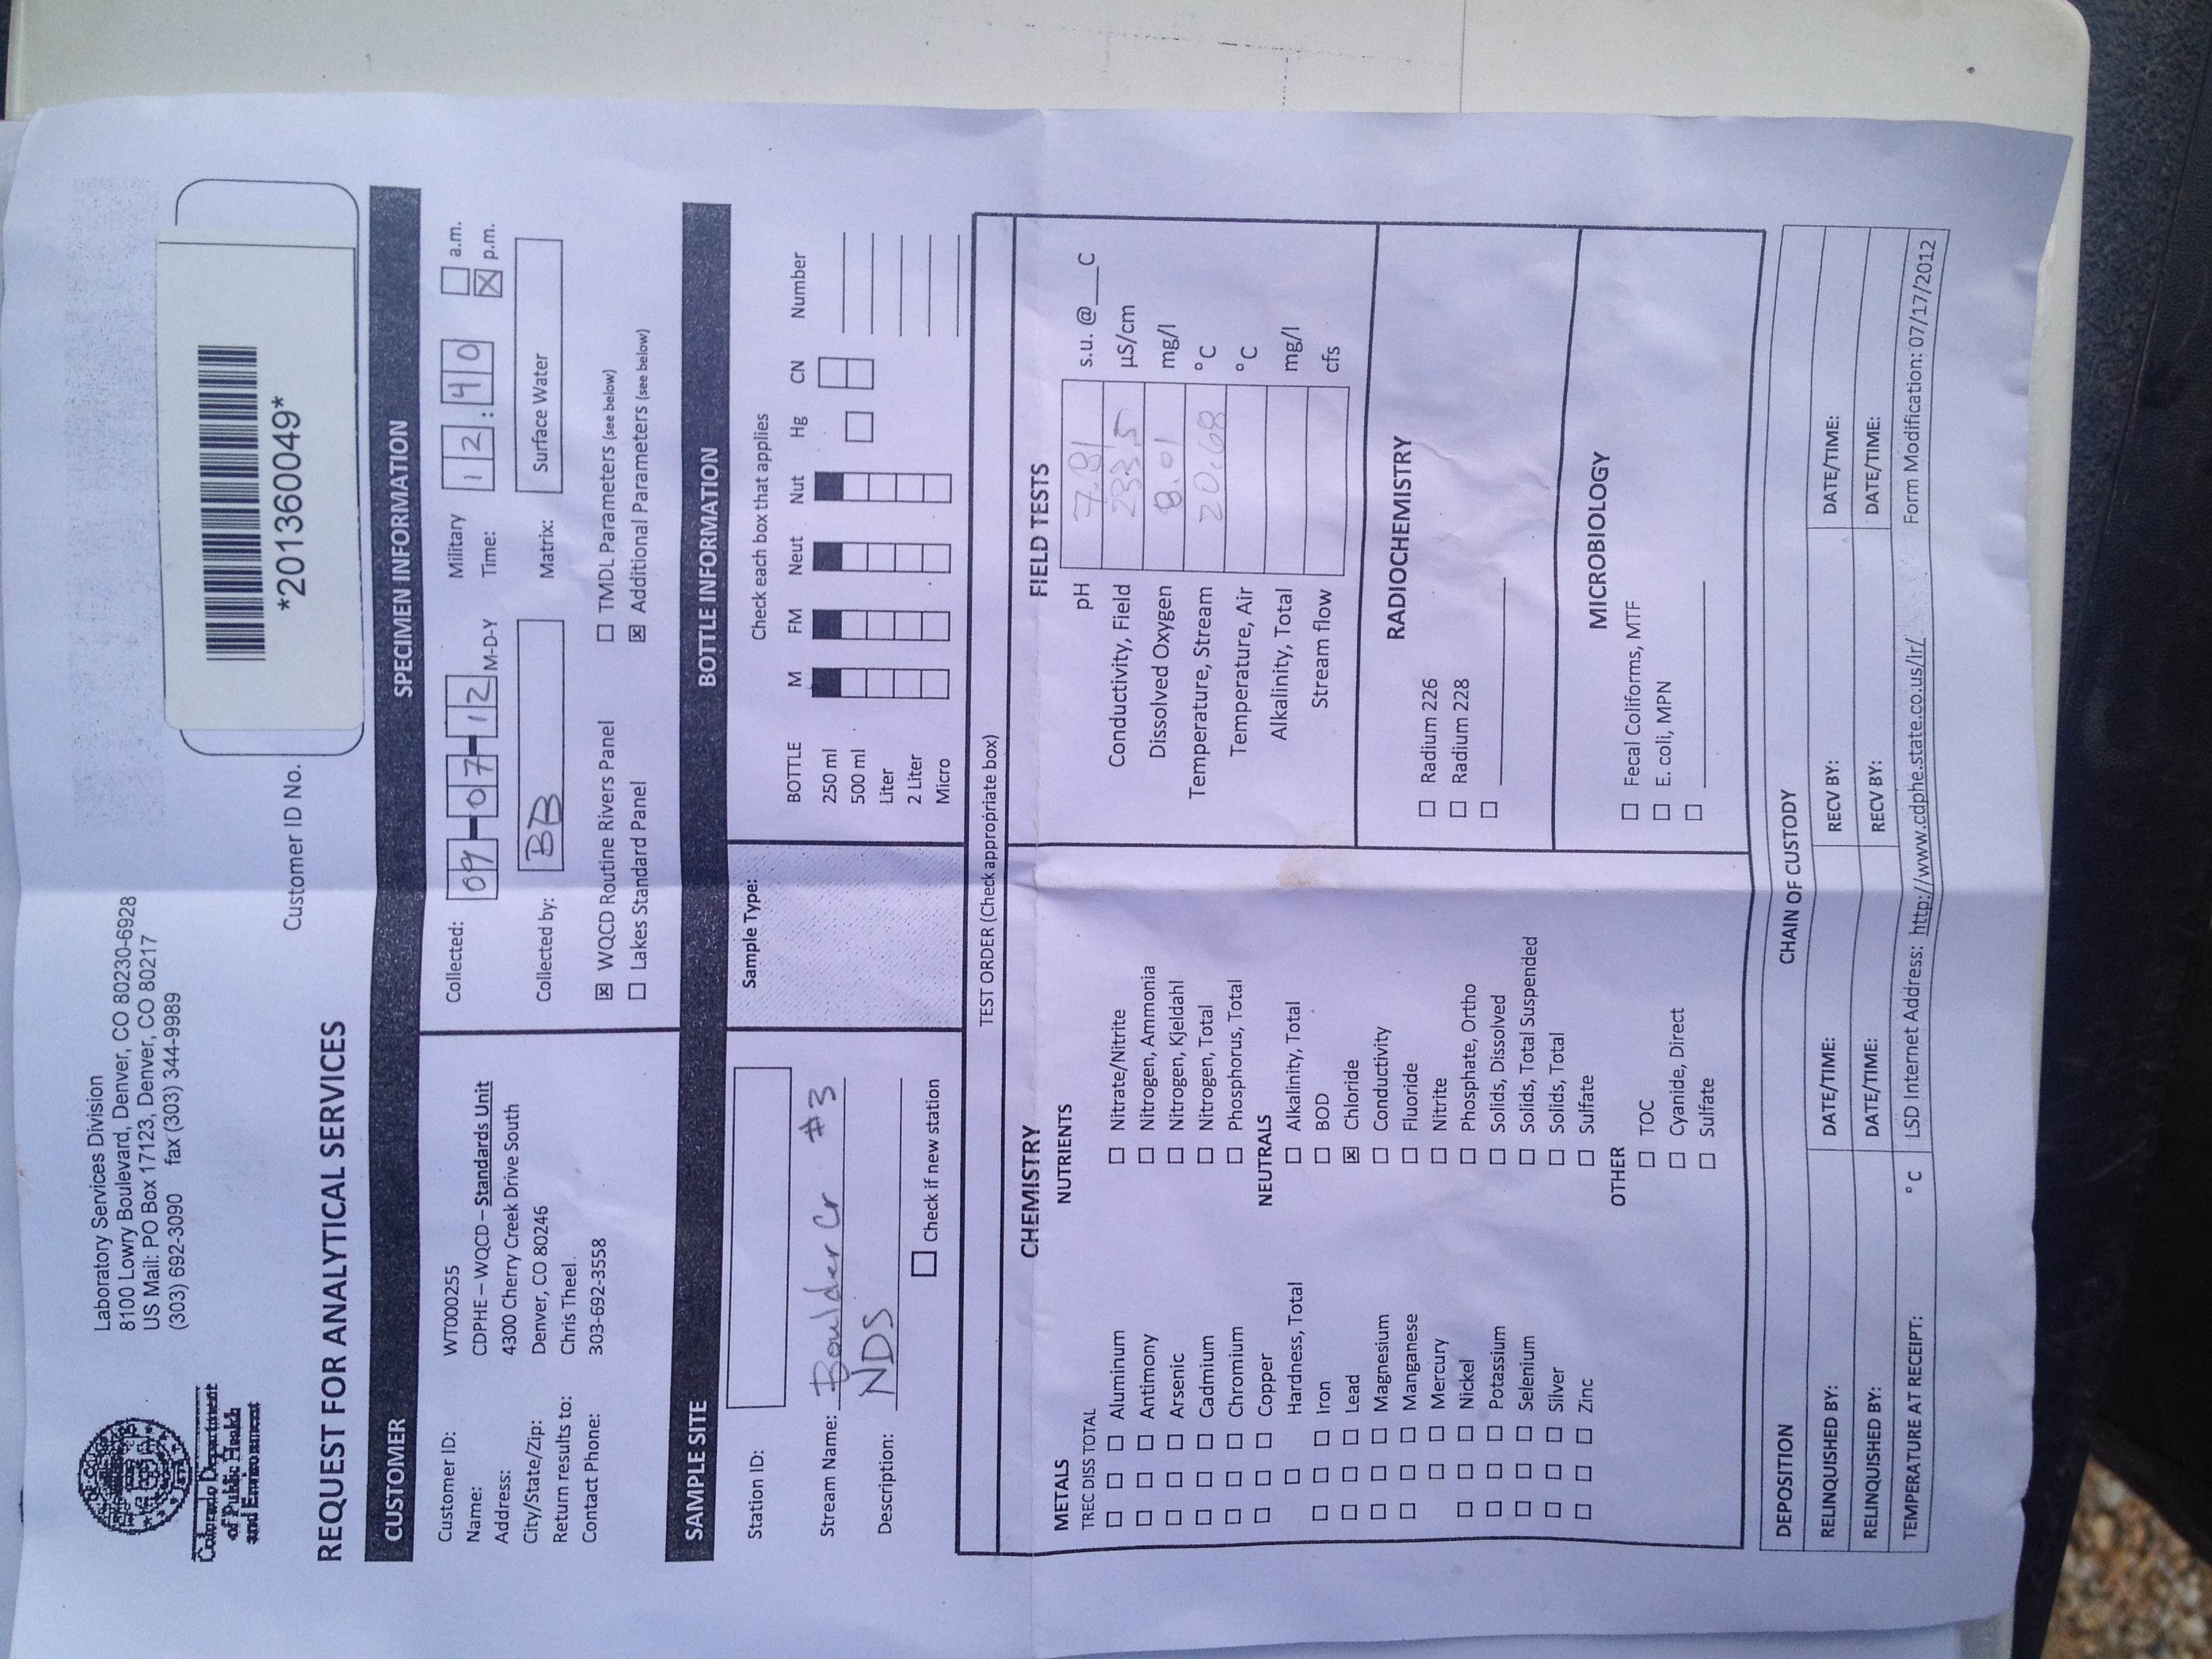 Colorado Department
of Public Health
and Environment
Laboratory Services Division
8100 Lowry Boulevard, Denver, CO 80230-6928
US Mail: PO Box 17123, Denver, CO 80217
(303) 692-3090 fax (303) 344-9989
REQUEST FOR ANALYTICAL SERVICES
Customer ID No.
*201360049*
CUSTOMER
Customer ID: WT000255
Name: CDPHE – WQCD – Standards Unit
Address: 4300 Cherry Creek Drive South
City/State/Zip: Denver, CO 80246
Return results to: Chris Theel
Contact Phone: 303-692-3558
SPECIMEN INFORMATION
Collected: 09-07-12 M-D-Y
Military Time: 12:40
☐ a.m.
☒ p.m.
Collected by: BB
Matrix: Surface Water
☒ WQCD Routine Rivers Panel
☐ TMDL Parameters (see below)
☐ Lakes Standard Panel
☒ Additional Parameters (see below)
SAMPLE SITE
Station ID:
Stream Name: Boulder Cr #3
Description: NDS
☐ Check if new station
Sample Type:
BOTTLE INFORMATION
Check each box that applies
BOTTLE M FM Neut Nut Hg CN Number
250 ml
500 ml
Liter
2 Liter
Micro
TEST ORDER (Check appropriate box)
CHEMISTRY
METALS
TREC DISS TOTAL
☐ ☐ ☐ Aluminum
☐ ☐ ☐ Antimony
☐ ☐ ☐ Arsenic
☐ ☐ ☐ Cadmium
☐ ☐ ☐ Chromium
☐ ☐ ☐ Copper
☐ Hardness, Total
☐ ☐ ☐ Iron
☐ ☐ ☐ Lead
☐ ☐ ☐ Magnesium
☐ ☐ ☐ Manganese
☐ ☐ Mercury
☐ ☐ ☐ Nickel
☐ ☐ ☐ Potassium
☐ ☐ ☐ Selenium
☐ ☐ ☐ Silver
☐ ☐ ☐ Zinc
NUTRIENTS
☐ Nitrate/Nitrite
☐ Nitrogen, Ammonia
☐ Nitrogen, Kjeldahl
☐ Nitrogen, Total
☐ Phosphorus, Total
NEUTRALS
☐ Alkalinity, Total
☐ BOD
☒ Chloride
☐ Conductivity
☐ Fluoride
☐ Nitrite
☐ Phosphate, Ortho
☐ Solids, Dissolved
☐ Solids, Total Suspended
☐ Solids, Total
☐ Sulfate
OTHER
☐ TOC
☐ Cyanide, Direct
☐ Sulfate
FIELD TESTS
pH 7.81 s.u. @___C
Conductivity, Field 233.5 µS/cm
Dissolved Oxygen 8.01 mg/l
Temperature, Stream 20.68 °C
Temperature, Air °C
Alkalinity, Total mg/l
Stream flow cfs
RADIOCHEMISTRY
☐ Radium 226
☐ Radium 228
☐
MICROBIOLOGY
☐ Fecal Coliforms, MTF
☐ E. coli, MPN
☐
DEPOSITION CHAIN OF CUSTODY
RELINQUISHED BY: DATE/TIME: RECV BY: DATE/TIME:
RELINQUISHED BY: DATE/TIME: RECV BY: DATE/TIME:
TEMPERATURE AT RECEIPT: °C LSD Internet Address: http://www.cdphe.state.co.us/lr/ Form Modification: 07/17/2012